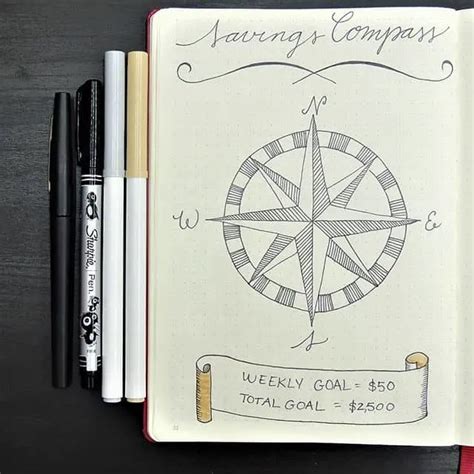 Savings Compass
N
W
E
S
WEEKLY GOAL = $50
TOTAL GOAL = $2,500
Sharpie Pen